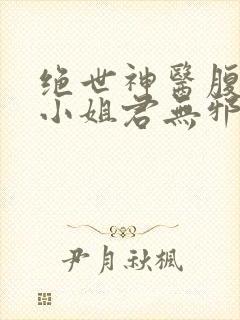 绝世神醫腹
小姐君無邪
尹月秋楓